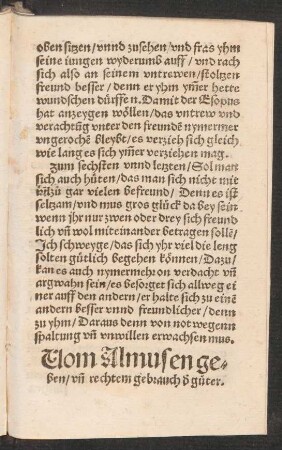 oben sitzen/ vnnd zusehen/ vnd fras yhm
seine iungen wyderumb auff/ vnd rach
sich also an seinem vntrewen/ stoltzen
freund besser/ denn er yhm ym̃er hette
wundschen dürffen. Damit der Esopus
hat anzeygen wöllen/ das vntrew vnd
verachtũg vnter den freundẽ nymermer
vngerochẽ bleybt/ es verzieh sich gleich
wie lang es sich ym̃er verziehen mag.
Zum sechsten vnnd letzten/ Sol man
sich auch hüten/ das man sich nicht mit
zu gar vielen befreund/ Denn es ist
seltzam/ vnd mus gros glück da bey sein
wenn jhr nur zwen oder drey sich freund
lich vñ wol miteinander betragen sollẽ/
Ich schweyge/ das sich yhr viel die leng
solten gütlich begehen können/ Dazu/
kan es auch nymermehr on verdacht vñ
argwahn sein/ es besorget sich allweg ei
ner auff den andern/ er halte sich zu einẽ
andern besser vnnd freundlicher/ denn
zu yhm/ Daraus denn von not wegenn
spaltung vñ vnwillen erwachsen mus.
Vom Almusen ge-
ben/ vñ rechtem gebrauch d̕ güter.